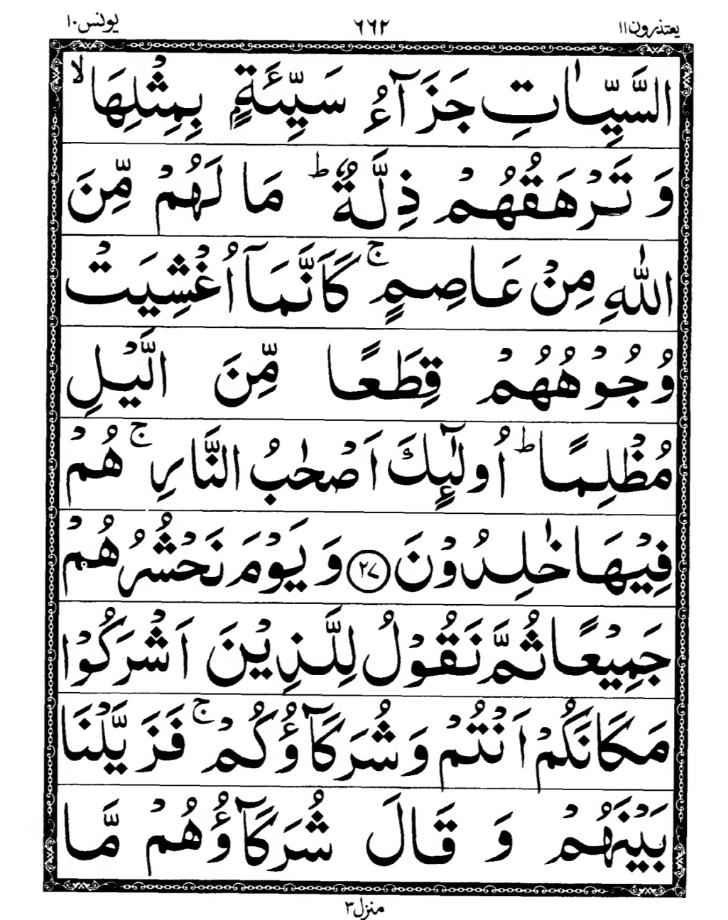 یعتذرون ۱۱ ۶۶۲ یونس ۱۰
السَّيِّاٰتِ جَزَآءُ سَيِّئَةٍۭ بِمِثْلِهَا ۙ
وَ تَرْهَقُهُمْ ذِلَّةٌ ؕ مَا لَهُمْ مِّنَ
اللّٰهِ مِنْ عَاصِمٍ ۚ كَاَنَّمَاۤ اُغْشِيَتْ
وُجُوْهُهُمْ قِطَعًا مِّنَ الَّيْلِ
مُظْلِمًا ؕ اُولٰٓئِكَ اَصْحٰبُ النَّارِ ۚ هُمْ
فِيْهَا خٰلِدُوْنَ ﴿۲۷﴾ وَ يَوْمَ نَحْشُرُهُمْ
جَمِيْعًا ثُمَّ نَقُوْلُ لِلَّذِيْنَ اَشْرَكُوْا
مَكَانَكُمْ اَنْتُمْ وَ شُرَكَآؤُكُمْ ۚ فَزَيَّلْنَا
بَيْنَهُمْ وَ قَالَ شُرَكَآؤُهُمْ مَّا
منزل ۳